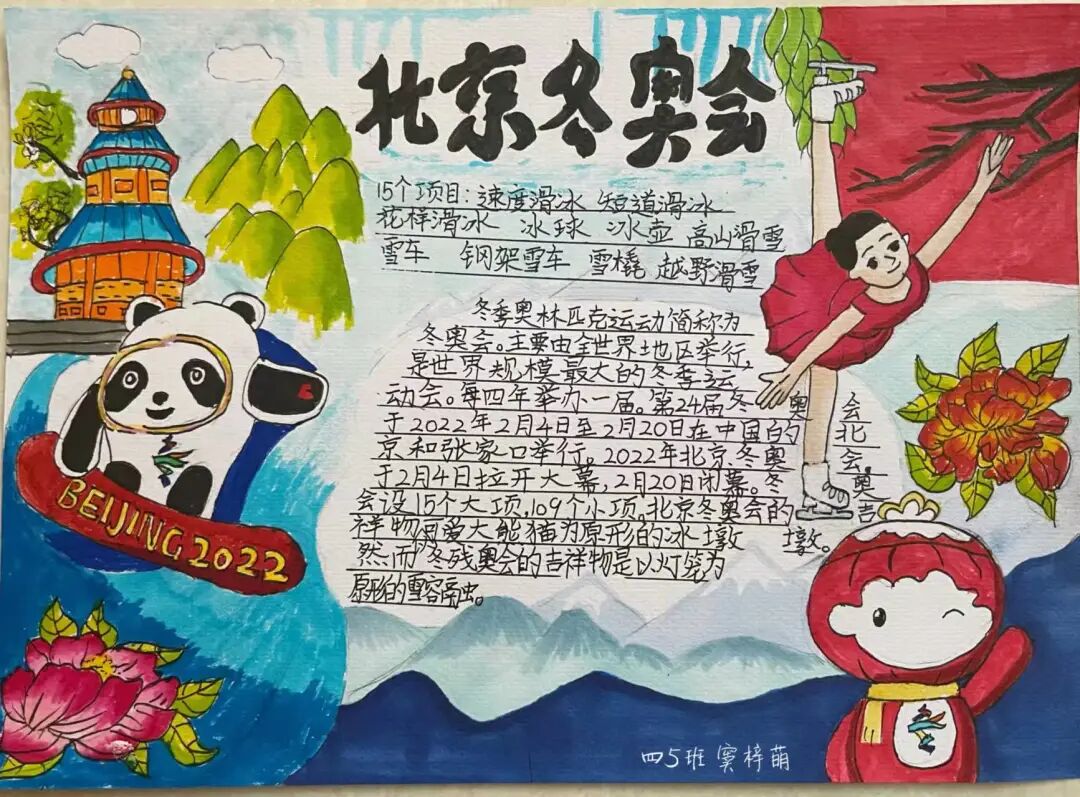 北京冬奥会
15个项目：速度滑冰 短道滑冰
花样滑冰 冰球 冰壶 高山滑雪
雪车 钢架雪车 雪橇 越野滑雪
冬季奥林匹克运动简称为
冬奥会。主要由全世界地区举行,
是世界规模最大的冬季运
动会。每四年举办一届。第24届冬奥会
于2022年2月4日至2月20日在中国的北
京和张家口举行。2022年北京冬奥会
于2月4日拉开大幕,2月20日闭幕。冬奥
会设15个大项,109个小项。北京冬奥会的吉
祥物可爱大能猫为原形的冰墩墩。
然而冬残奥会的吉祥物是以灯笼为
原形的雪容融。
BEIJING 2022
四5班 窦梓萌